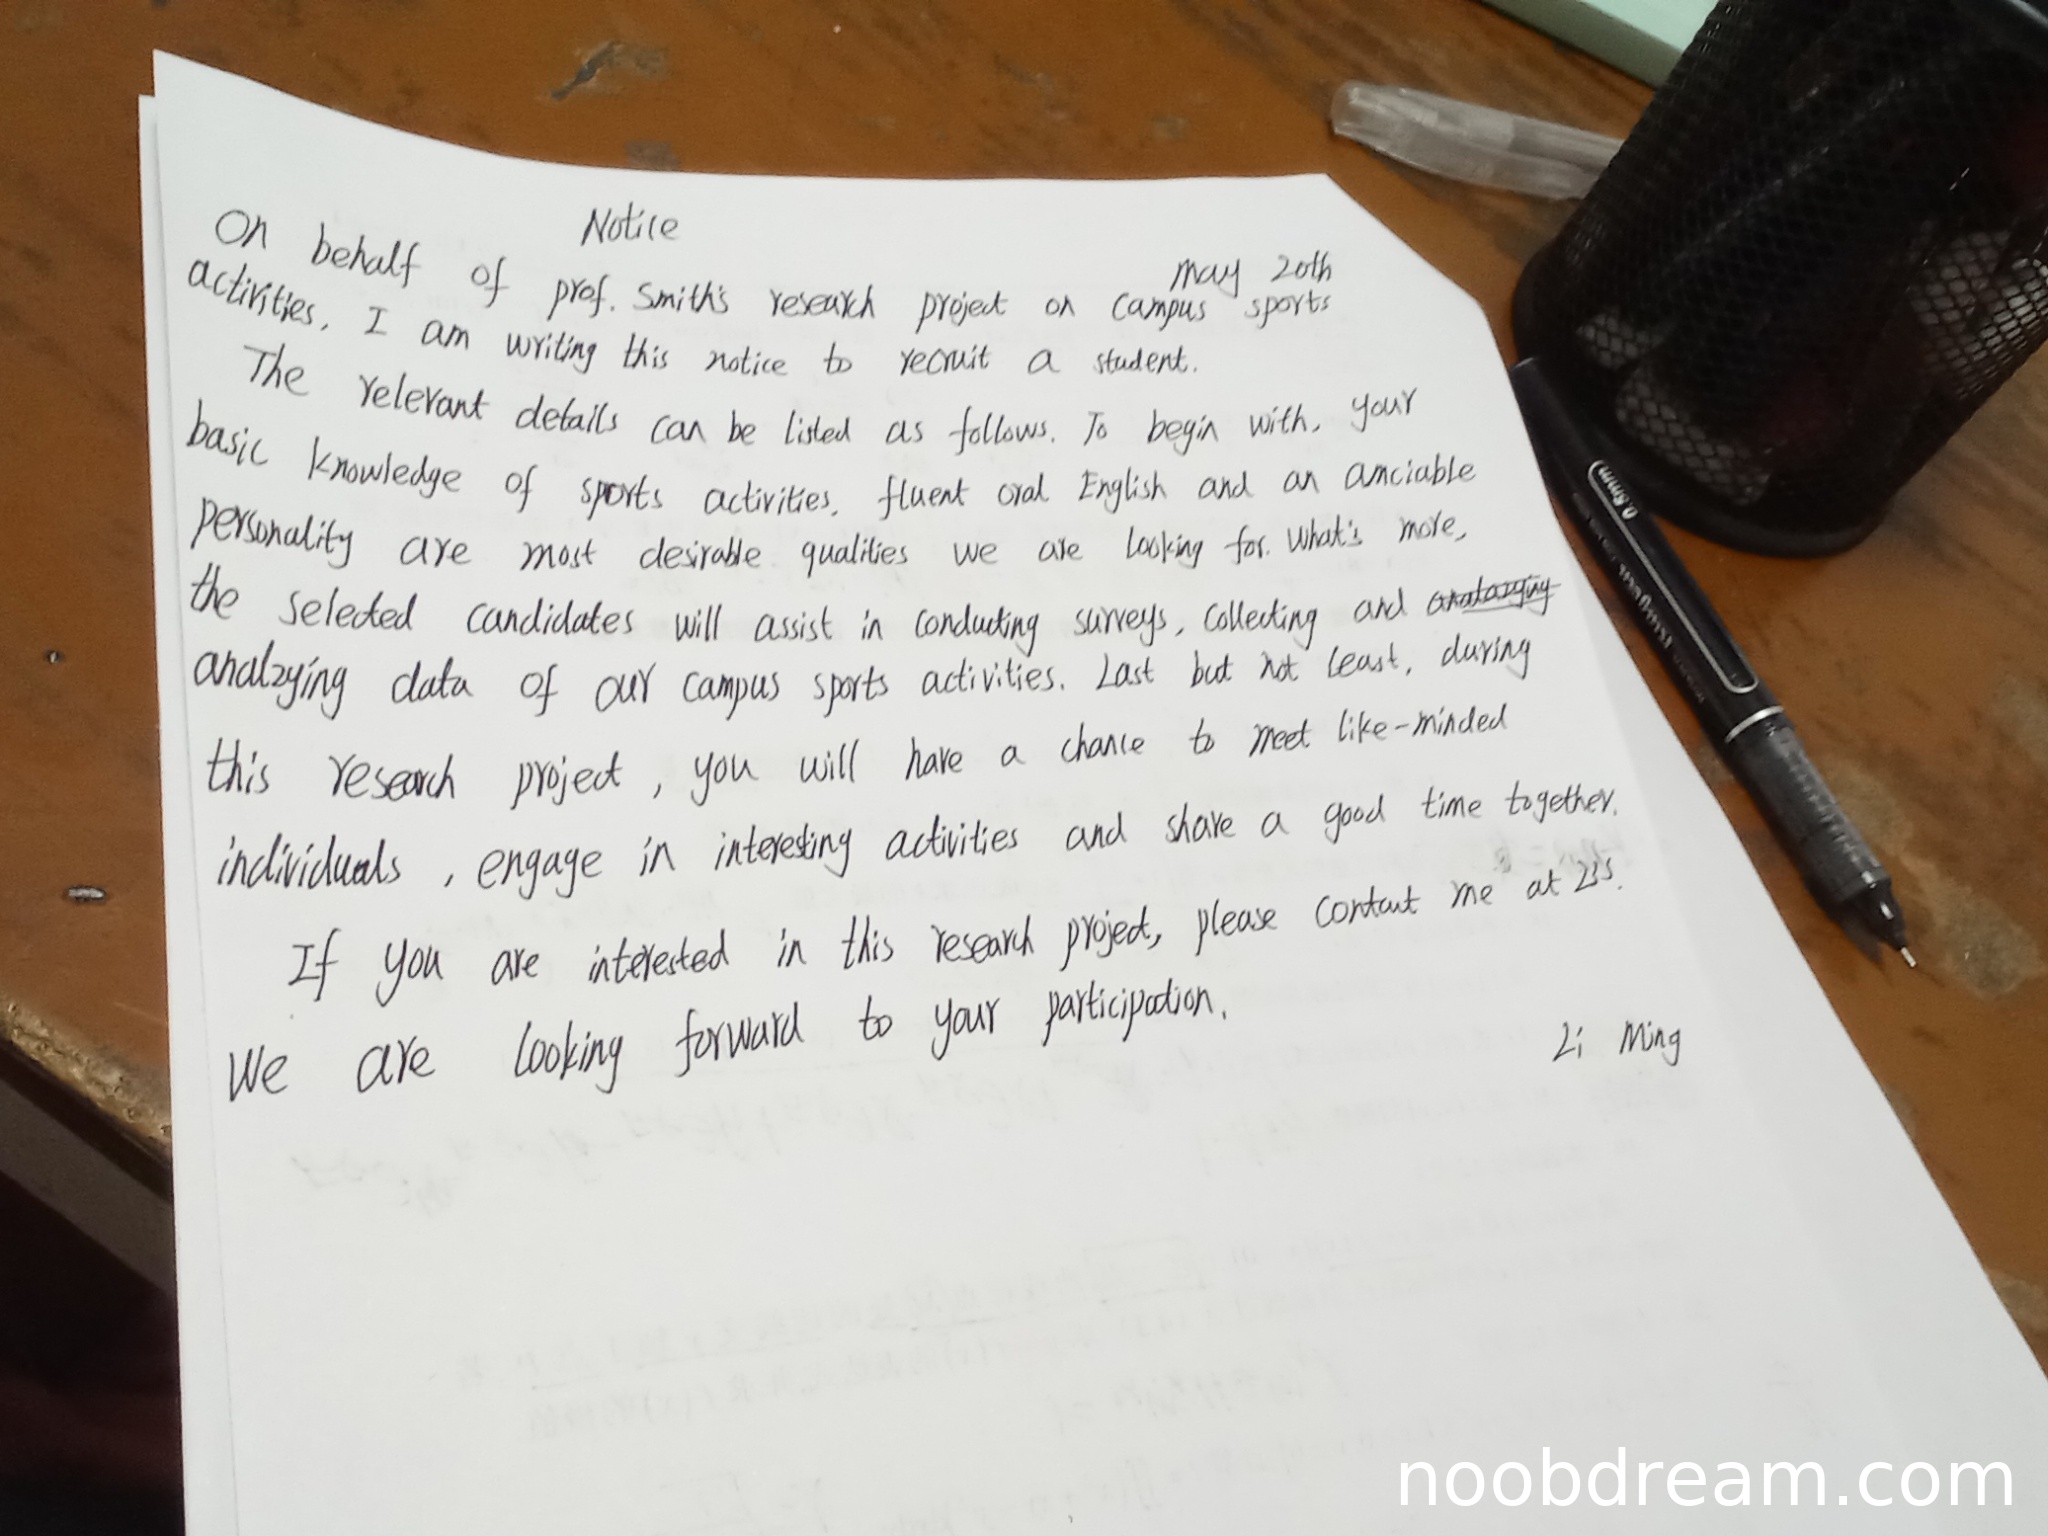 Notice
May 20th
On behalf of prof. Smith's research project on campus sports
activities, I am writing this notice to recruit a student.
The relevant details can be listed as follows. To begin with, your
basic knowledge of sports activities, fluent oral English and an amciable
personality are most desirable qualities we are looking for. What's more,
the selected candidates will assist in conducting surveys, collecting and
analzying data of our campus sports activities. Last but not least, during
this research project, you will have a chance to meet like-minded
individuals, engage in interesting activities and share a good time together.
If you are interested in this research project, please contact me at
We are looking forward to your participation.
Li Ming
0.5mm
noobdream.com